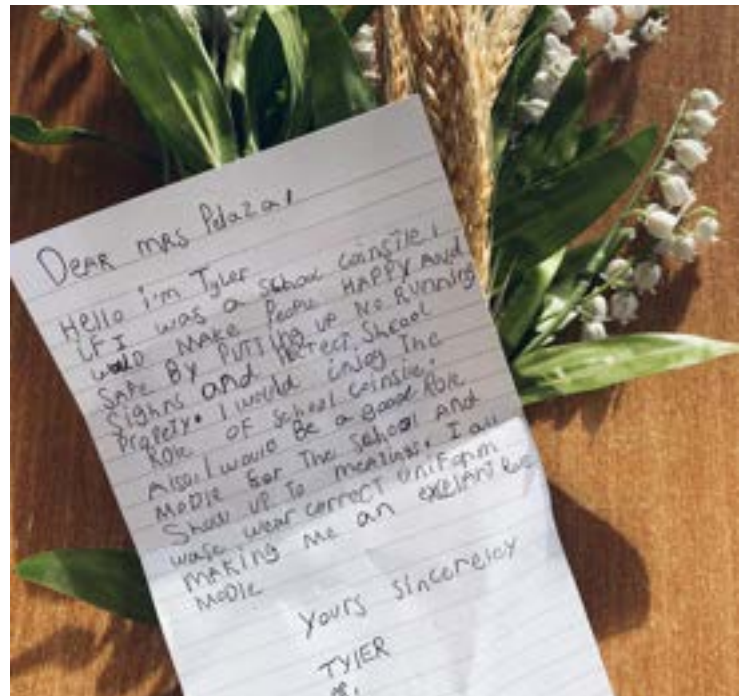 DEAR MRS Pelazar
Hello i'm Tyler
IF I was a school coinsile i
would MAKE People HAPPY And
SAFE BY PUTTING UP NO RUNNING
Sighns and Pertect Shcool
Propety. I would injoy The
Role OF School coinsile,
Also, I would Be a good Role
Modle for The school And
Show up To meatings. I all
wase wear correct uniform
making me an exelant Role
Modle
yours sincereley
TYlER